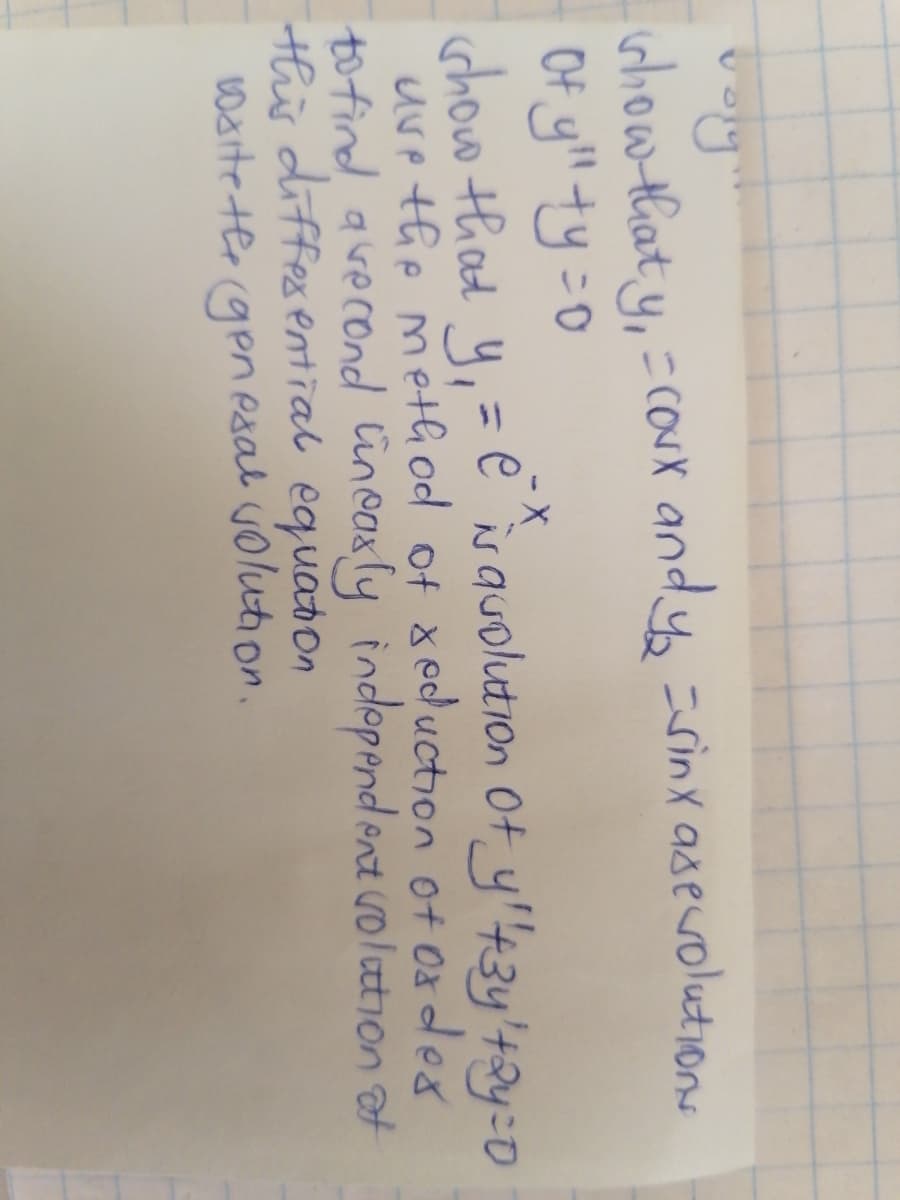 show that y₁ = cosx and y₂ = sinx are solutions
of y'' + y = 0
show that y₁ = e⁻ˣ is a solution of y'' + 3y' + 2y = 0
use the method of reduction of order
to find a second linearly independent solution of
this differential equation
write the general solution.